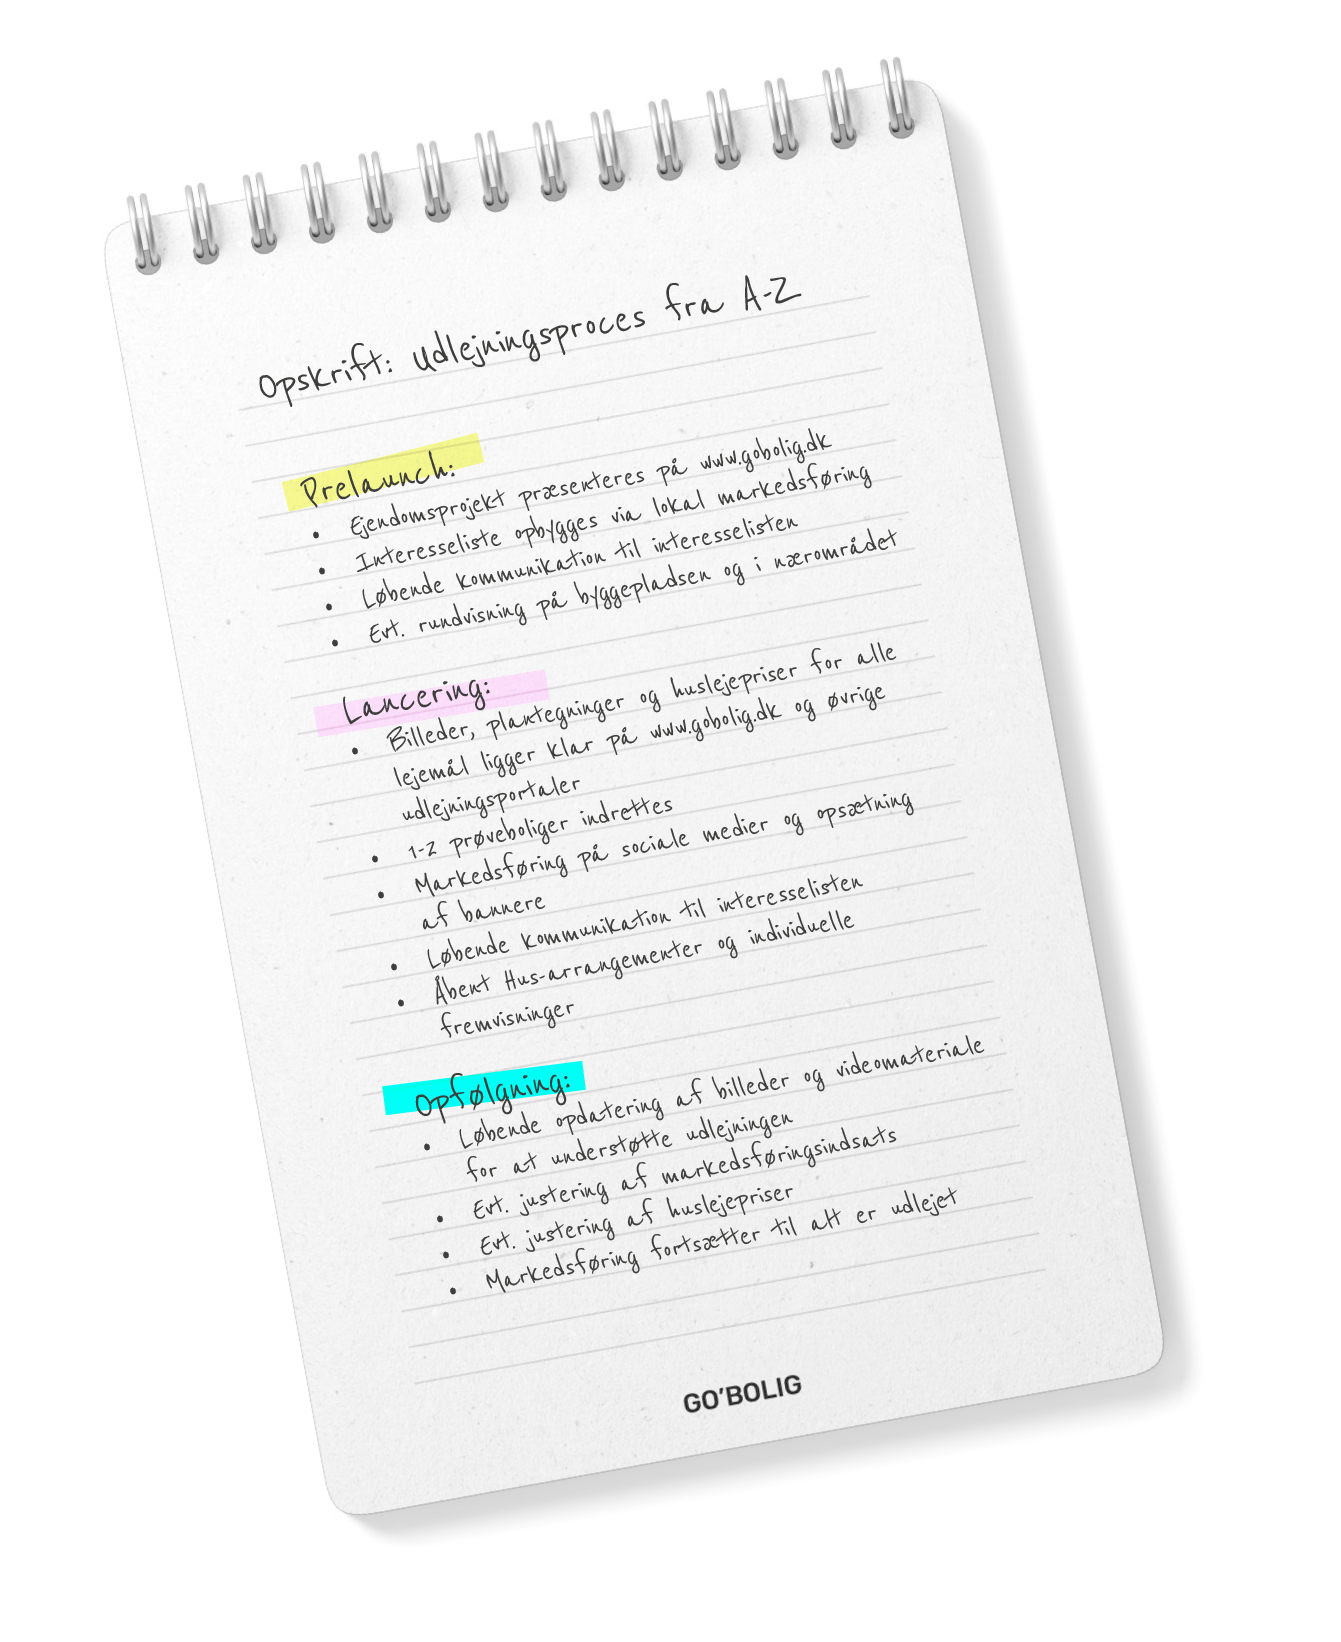 Opskrift: Udlejningsproces fra A-Z
Prelaunch:
• Ejendomsprojekt præsenteres på www.gobolig.dk
• Interesseliste opbygges via lokal markedsføring
• Løbende kommunikation til interesselisten
• Evt. rundvisning på byggepladsen og i nærområdet
Lancering:
• Billeder, plantegninger og huslejepriser for alle
lejemål ligger klar på www.gobolig.dk og øvrige
udlejningsportaler
• 1-2 prøveboliger indrettes
• Markedsføring på sociale medier og opsætning
af bannere
• Løbende kommunikation til interesselisten
• Åbent Hus-arrangementer og individuelle
fremvisninger
Opfølgning:
• Løbende opdatering af billeder og videomateriale
for at understøtte udlejningen
• Evt. justering af markedsføringsindsats
• Evt. justering af huslejepriser
• Markedsføring fortsætter til alt er udlejet
GO'BOLIG